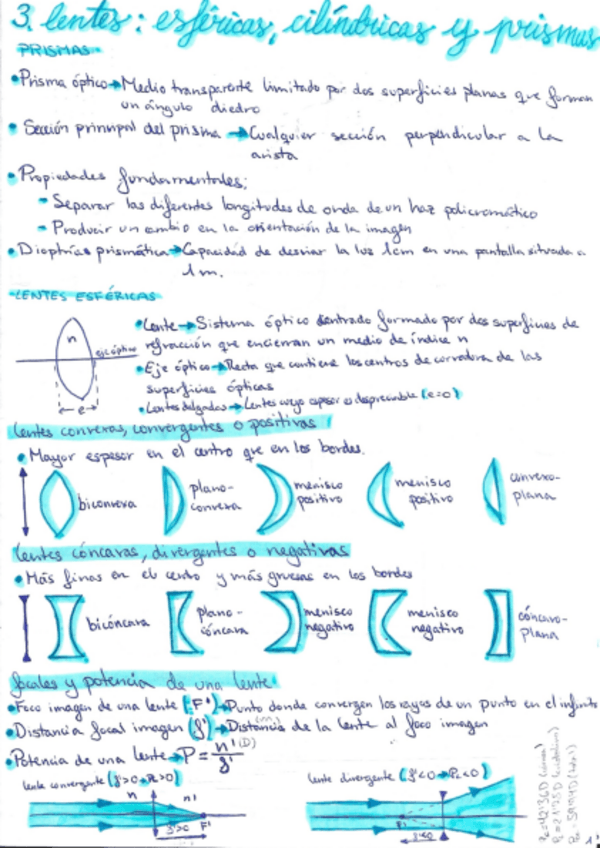 3. lentes: esféricas, cilíndricas y prismas
PRISMAS
• Prisma óptico → Medio transparente limitado por dos superficies planas que forman
un ángulo diedro
• Sección principal del prisma → Cualquier sección perpendicular a la
arista
• Propiedades fundamentales:
- Separar las diferentes longitudes de onda de un haz policromático
- Producir un cambio en la orientación de la imagen
• Dioptrías prismática → Capacidad de desviar la luz 1cm en una pantalla situada a
1m.
LENTES ESFÉRICAS
• Lente → Sistema óptico centrado formado por dos superficies de
refracción que encierran un medio de índice n
• Eje óptico → Recta que contiene los centros de curvatura de las
superficies ópticas
• Lentes delgadas → Lentes cuyo espesor es despreciable (e=0)
n
eje óptico
e
lentes convexas, convergentes o positivas
• Mayor espesor en el centro que en los bordes.
biconvexa
plano-
convexa
menisco
positivo
menisco
positivo
convexo-
plana
lentes cóncavas, divergentes o negativas
• Más finas en el centro y más gruesas en los bordes
bicóncava
plano-
cóncava
menisco
negativo
menisco
negativo
cóncavo-
plana
focales y potencia de una lente
• Foco imagen de una lente (F') → Punto donde convergen los rayos de un punto en el infinito
• Distancia focal imagen (f') → Distancia (m) de la lente al foco imagen
• Potencia de una lente → P = n'/f' (D)
lente convergente (f'>0 → P>0)
n
n'
f'>0
F'
lente divergente (f'<0 → P<0)
F'
f'<0
1